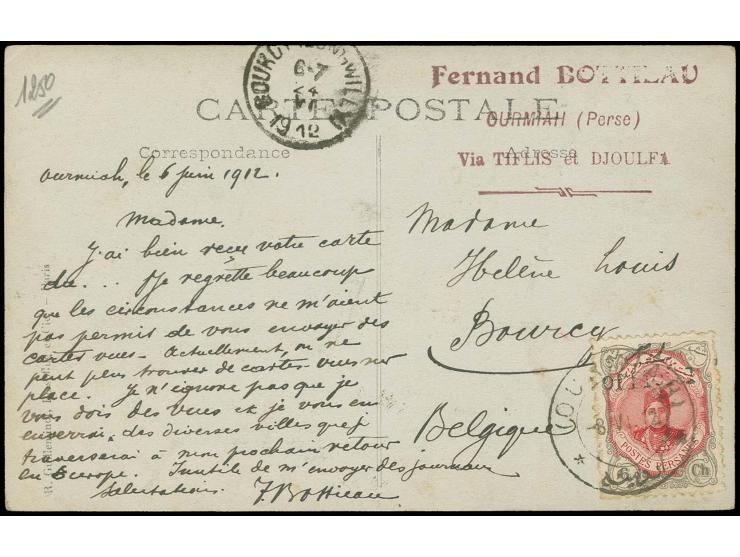 1250
BOURCY (LONGWILLY)
6-7
1912
Fernand BOTTIEAU
CARTE POSTALE
OURMIAH (Perse)
Correspondance
Adresse
Via TIFLIS et DJOULFA
Ourmiah, le 6 juin 1912.
Madame,
J'ai bien reçu votre carte
du... Je regrette beaucoup
que les circonstances ne m'aient
pas permis de vous envoyer des
cartes vues. Actuellement, on ne
peut plus trouver de cartes-vues sur
place. Je n'ignore pas que je
vous dois des vues et je vous en
enverrai, des diverses villes que j
traverserai à mon prochain retour
en Europe. Inutile de m'envoyer des journaux
Salutations. F. Bottieau
Madame
Helène Louis
Bourcy
Belgique
POSTES PERSANES
6 Ch